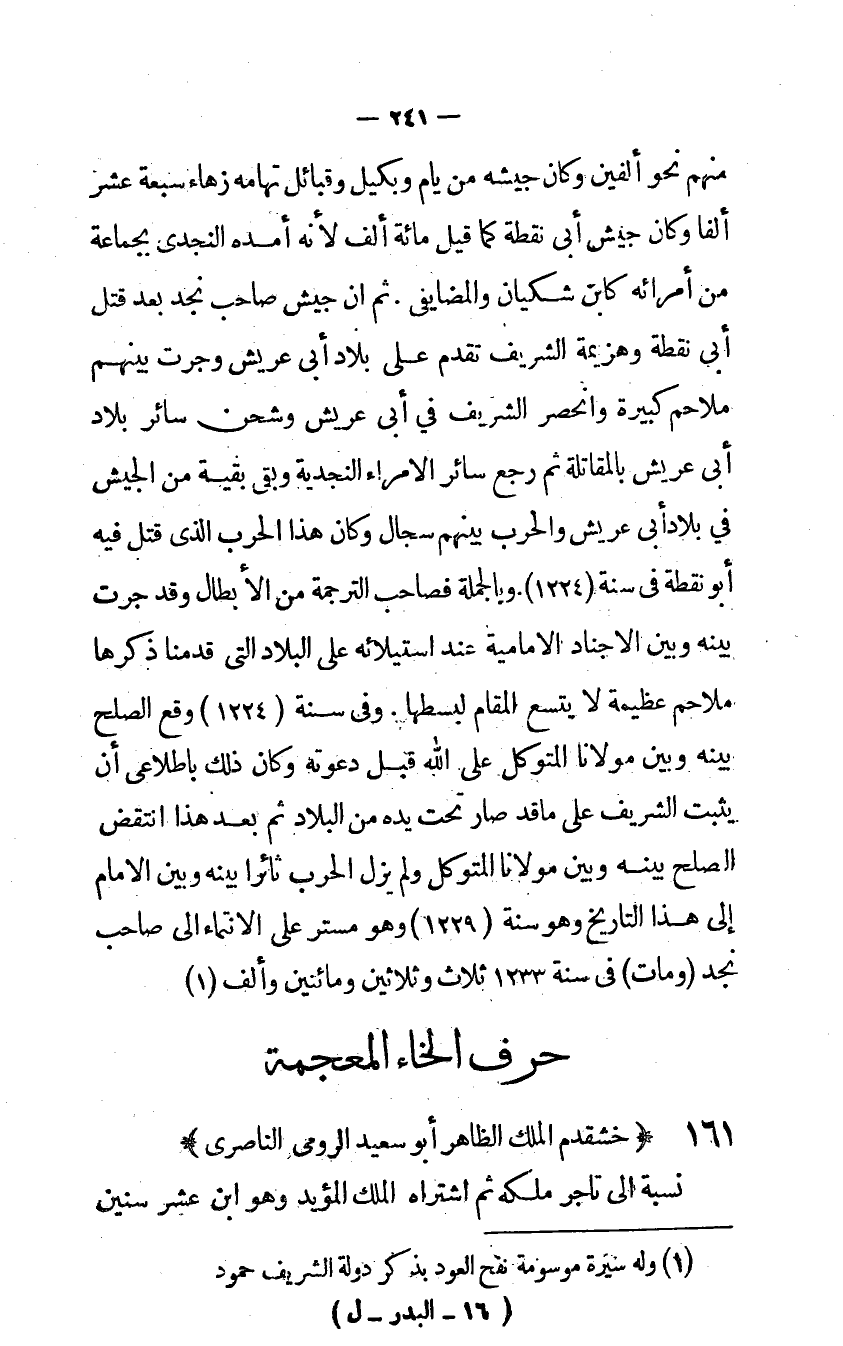 — ٢٤١ —
منهم نحو ألفين وكان جيشه من يام وبكيل وقبائل تهامه زهاء سبعة عشر
ألفا وكان جيش أبى نقطة كما قيل مائة ألف لأنه أمده النجدى بجماعة
من أمرائه كابن شكيان والمضايفى . ثم ان جيش صاحب نجد بعد قتل
أبى نقطة وهزيمة الشريف تقدم على بلاد أبى عريش وجرت بينهم
ملاحم كبيرة وانحصر الشريف في أبى عريش وشحن سائر بلاد
أبى عريش بالمقاتلة ثم رجع سائر الامراء النجدية وبقى بقية من الجيش
في بلاد أبى عريش والحرب بينهم سجال وكان هذا الحرب الذى قتل فيه
أبو نقطة فى سنة (١٢٢٤). وبالجملة فصاحب الترجمة من الأبطال وقد جرت
بينه وبين الاجناد الامامية عند استيلائه على البلاد التى قدمنا ذكرها
ملاحم عظيمة لا يتسع المقام لبسطها . وفى سنة ( ١٢٢٤ ) وقع الصلح
بينه وبين مولانا المتوكل على الله قبل دعوته وكان ذلك باطلاعى أن
يثبت الشريف على ماقد صار تحت يده من البلاد ثم بعد هذا انتقض
الصلح بينه وبين مولانا المتوكل ولم يزل الحرب ثائرا بينه وبين الامام
إلى هذا التاريخ وهو سنة ( ١٢٢٩ ) وهو مستر على الانتماء الى صاحب
نجد (ومات) فى سنة ١٢٣٣ ثلاث وثلاثين ومائتين وألف (١)
حرف الخاء المعجمة
١٦١ ﴿ خشقدم الملك الظاهر أبو سعيد الرومى الناصرى ﴾
نسبة الى تاجر ملكه ثم اشتراه الملك المؤيد وهو ابن عشر سنين
(١) وله سيرة موسومة نفح العود بذكر دولة الشريف حمود
( ١٦ ـ البدر ـ ل )